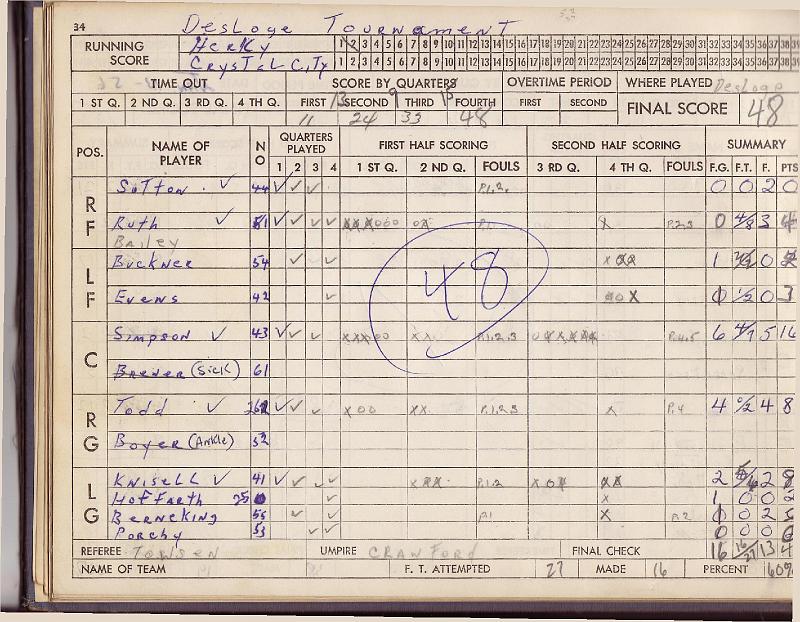 34 Desloge Tournament
RUNNING SCORE
Herky 1 2 3 4 5 6 7 8 9 10 11 12 13 14 15 16 17 18 19 20 21 22 23 24 25 26 27 28 29 30 31 32 33 34 35 36 37 38 39
Crystal City 1 2 3 4 5 6 7 8 9 10 11 12 13 14 15 16 17 18 19 20 21 22 23 24 25 26 27 28 29 30 31 32 33 34 35 36 37 38 39
TIME OUT SCORE BY QUARTERS OVERTIME PERIOD WHERE PLAYED Desloge
1 ST Q. 2 ND Q. 3 RD Q. 4 TH Q. FIRST 13 SECOND 9 THIRD 15 FOURTH FIRST SECOND FINAL SCORE 48
11 24 33 48
POS. NAME OF PLAYER NO QUARTERS PLAYED FIRST HALF SCORING SECOND HALF SCORING SUMMARY
1 2 3 4 1 ST Q. 2 ND Q. FOULS 3 RD Q. 4 TH Q. FOULS F.G. F.T. F. PTS
RF Sutton ✓ 44 ✓ ✓ ✓ P.1.2. 0 0 2 0
Ruth ✓ 51 ✓ ✓ ✓ ✓ P.1 x P.2.3 0 4/8 3 4
Bailey
LF Buckner 54 ✓ ✓ 1 0
Evens 42 ✓ 0 1/2 0 3
48
C Simpson ✓ 43 ✓ ✓ ✓ xxx00 xx P.1.2.3 P.4.5 6 4/7 5 16
Brewer (Sick) 61
RG Todd ✓ ✓ ✓ ✓ ✓ x00 xx P.1.2.3 x P.4 4 0/2 4 8
Boyer (Ankle) 52
LG Knisell ✓ 41 ✓ ✓ ✓ ✓ P.1.2 2 2 8
Hoffarth 25 ✓ x 1 0 0 2
Berneking 55 ✓ ✓ P.1 x P.2 0 2
Porchy 53 ✓ ✓ 0 0 0 0
REFEREE Towsen UMPIRE Crawford FINAL CHECK 16 16/27 13 4
NAME OF TEAM F. T. ATTEMPTED 27 MADE 16 PERCENT 60%